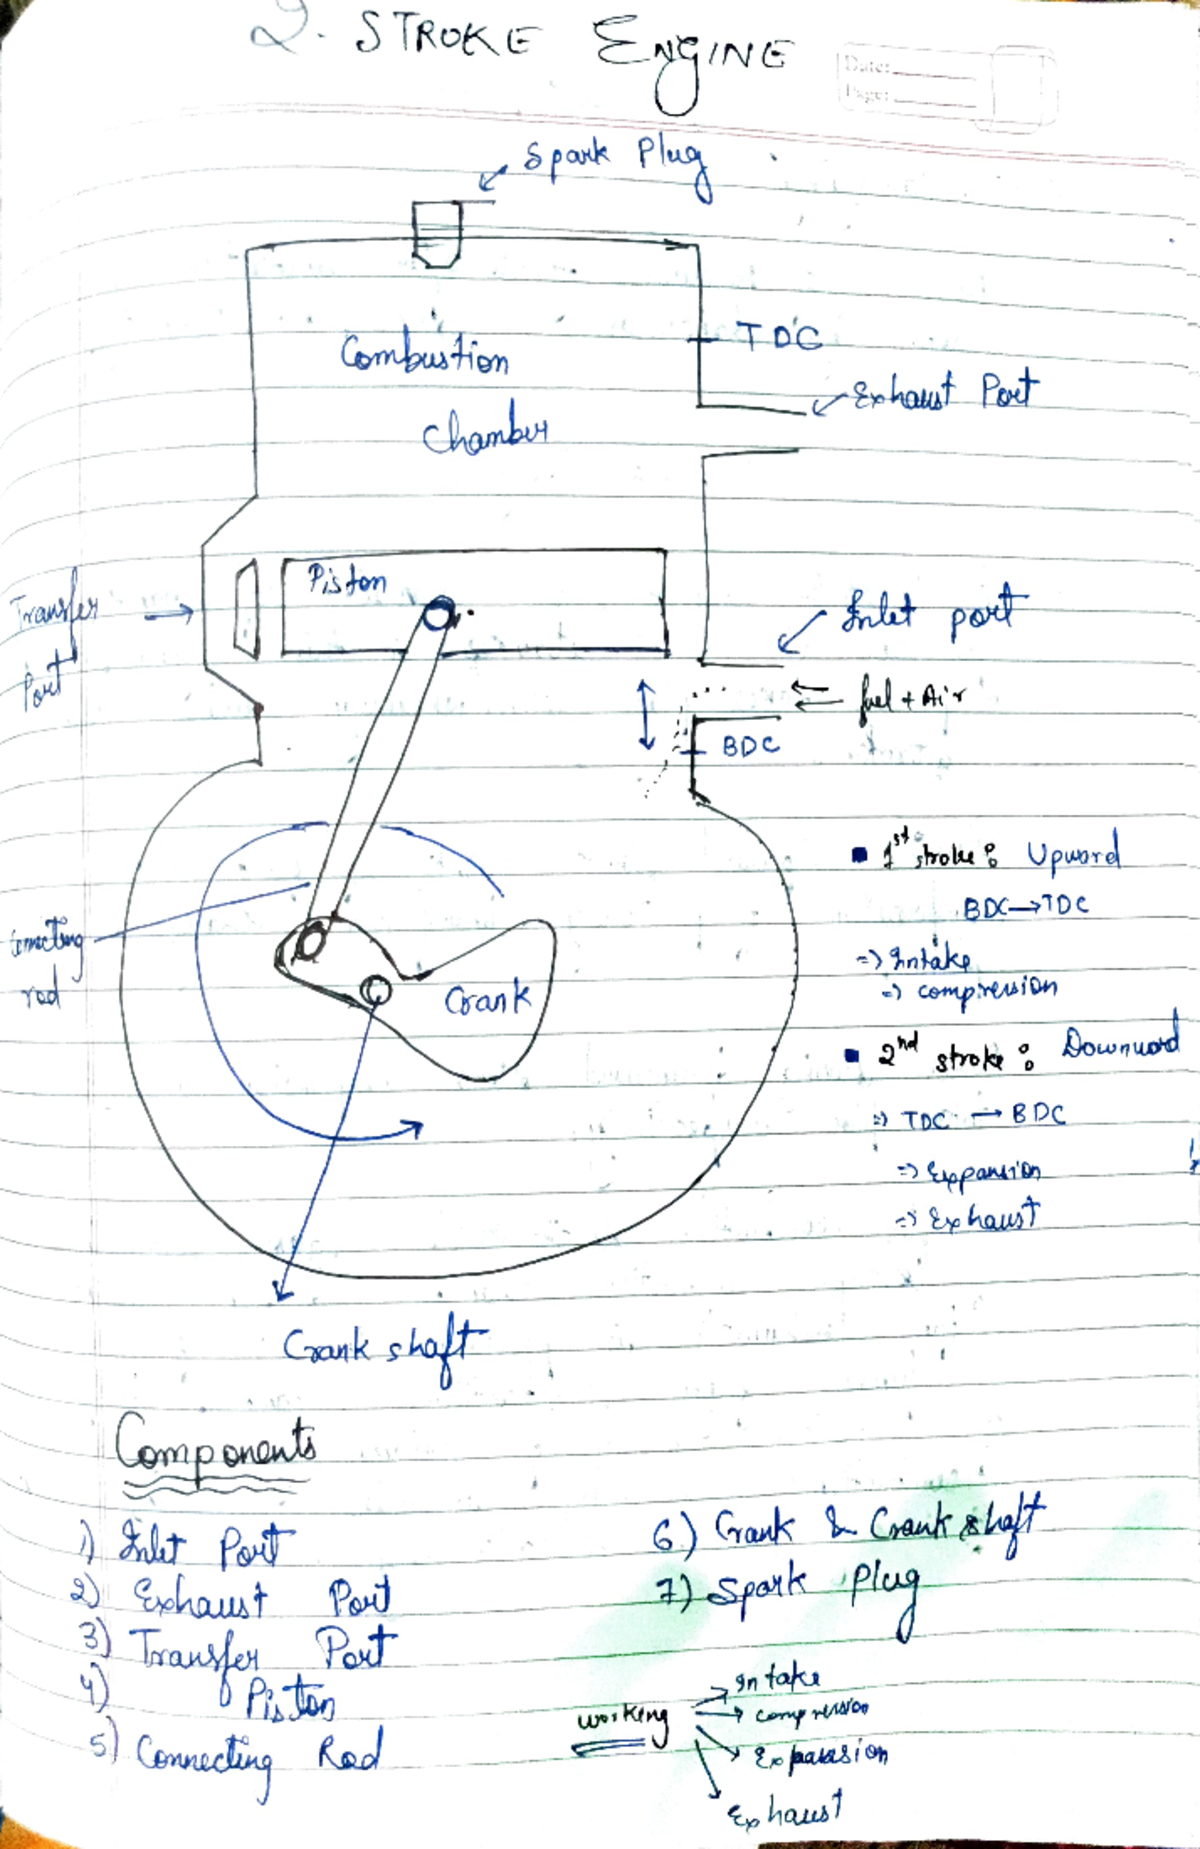 2. STROKE ENGINE
Date:
Page:
Spark Plug
TDC
Combustion
Chamber
Exhaust Port
Piston
Transfer
Port
Inlet port
fuel + Air
BDC
1st stroke: Upward
BDC→TDC
=) Intake
=) compression
Connecting
rod
Crank
2nd stroke: Downward
=) TDC → BDC
=) Expansion
=) Exhaust
Crank shaft
Components
1) Inlet Port
2) Exhaust Port
3) Transfer Port
4) Piston
5) Connecting Rod
6) Crank & Crank shaft
7) Spark Plug
working
Intake
compression
Expansion
Exhaust